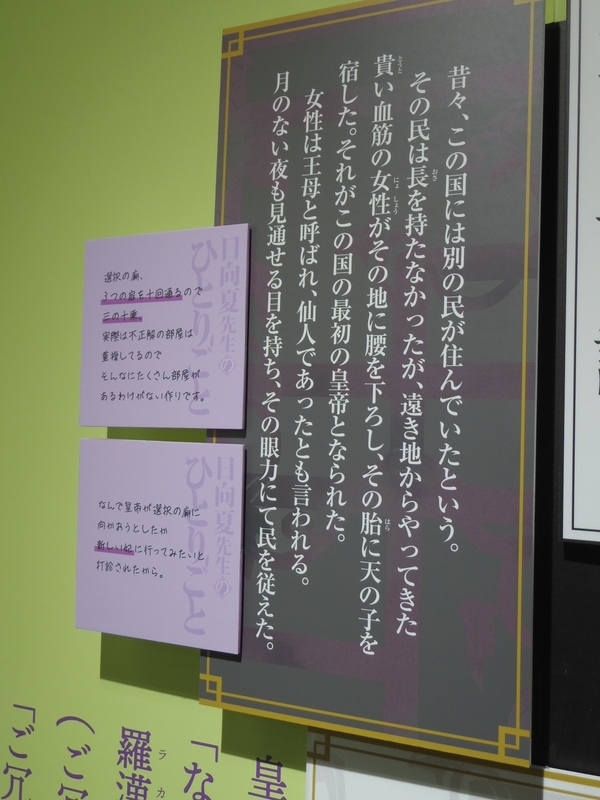 昔々、この国には別の民が住んでいたという。
その民は長を持たなかったが、遠き地からやってきた
貴い血筋の女性がその地に腰を下ろし、その胎に天の子を
宿した。それがこの国の最初の皇帝となられた。
女性は王母と呼ばれ、仙人であったとも言われる。
月のない夜も見通せる目を持ち、その眼力にて民を従えた。
日向夏先生の
ひとりごと
選択の廟、
3つの扉を十回通るので
三の十乗。
実際は不正解の部屋は
重複してるので
そんなにたくさん部屋が
あるわけがない作りです。
日向夏先生の
ひとりごと
なんで皇帝が選択の廟に
向かおうとしたか
新しい妃に行ってみたいと
打診されたから。
皇
「な
羅漢
(ご
「ご冗